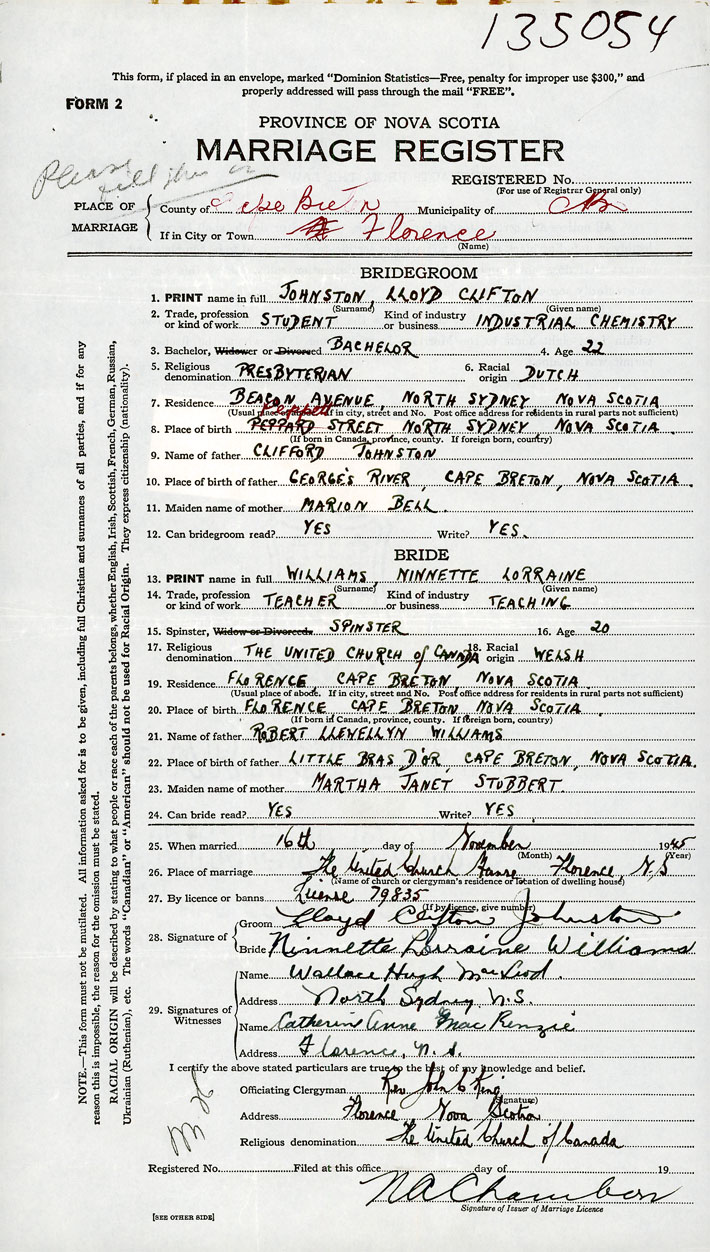 135054
This form, if placed in an envelope, marked "Dominion Statistics—Free, penalty for improper use $300," and
properly addressed will pass through the mail "FREE".
FORM 2
PROVINCE OF NOVA SCOTIA
MARRIAGE REGISTER
Please
fill this in
REGISTERED No.
(For use of Registrar General only)
PLACE OF MARRIAGE
County of Cape Breton Municipality of CB
If in City or Town Florence
(Name)
BRIDEGROOM
1. PRINT name in full JOHNSTON, LLOYD CLIFTON
(Surname) (Given name)
2. Trade, profession or kind of work STUDENT Kind of industry or business INDUSTRIAL CHEMISTRY
3. Bachelor, Widower or Divorced BACHELOR 4. Age 22
5. Religious denomination PRESBYTERIAN 6. Racial origin DUTCH
7. Residence BEACON AVENUE, NORTH SYDNEY, NOVA SCOTIA
(Usual place of abode. If in city, street and No. Post office address for residents in rural parts not sufficient)
Peppett
8. Place of birth PEPPARD STREET NORTH SYDNEY, NOVA SCOTIA.
(If born in Canada, province, county. If foreign born, country)
9. Name of father CLIFFORD JOHNSTON
10. Place of birth of father GEORGE'S RIVER, CAPE BRETON, NOVA SCOTIA.
11. Maiden name of mother MARION BELL
12. Can bridegroom read? YES Write? YES.
BRIDE
13. PRINT name in full WILLIAMS, NINNETTE LORRAINE
(Surname) (Given name)
14. Trade, profession or kind of work TEACHER Kind of industry or business TEACHING
15. Spinster, Widow or Divorced SPINSTER 16. Age 20
17. Religious denomination THE UNITED CHURCH of CANADA 18. Racial origin WELSH
19. Residence FLORENCE, CAPE BRETON, NOVA SCOTIA
(Usual place of abode. If in city, street and No. Post office address for residents in rural parts not sufficient)
20. Place of birth FLORENCE CAPE BRETON, NOVA SCOTIA
(If born in Canada, province, county. If foreign born, country)
21. Name of father ROBERT LLEWELLYN WILLIAMS
22. Place of birth of father LITTLE BRAS D'OR, CAPE BRETON, NOVA SCOTIA.
23. Maiden name of mother MARTHA JANET STUBBERT.
24. Can bride read? YES Write? YES.
25. When married 16th day of November 1945
(Month) (Year)
26. Place of marriage The United Church Manse Florence, N.S
(Name of church or clergyman's residence or location of dwelling house)
27. By licence or banns License 79835
(If by licence, give number)
28. Signature of
Groom Lloyd Clifton Johnston
Bride Ninnette Lorraine Williams
29. Signatures of Witnesses
Name Wallace Hugh MacLeod.
Address North Sydney, N.S.
Name Catherine Anne MacKenzie
Address Florence, N.S.
I certify the above stated particulars are true to the best of my knowledge and belief.
Officiating Clergyman Rev. John C King
(Signature)
Address Florence Nova Scotia
Religious denomination The United Church of Canada
Registered No. Filed at this office day of 19
N A Chambers
Signature of Issuer of Marriage Licence
[SEE OTHER SIDE]
NOTE.—This form must not be mutilated. All information asked for is to be given, including full Christian and surnames of all parties, and if for any
reason this is impossible, the reason for the omission must be stated.
RACIAL ORIGIN will be described by stating to what people or race each of the parents belongs, whether English, Irish, Scottish, French, German, Russian,
Ukrainian (Ruthenian), etc. The words "Canadian" or "American" should not be used for Racial Origin. They express citizenship (nationality).